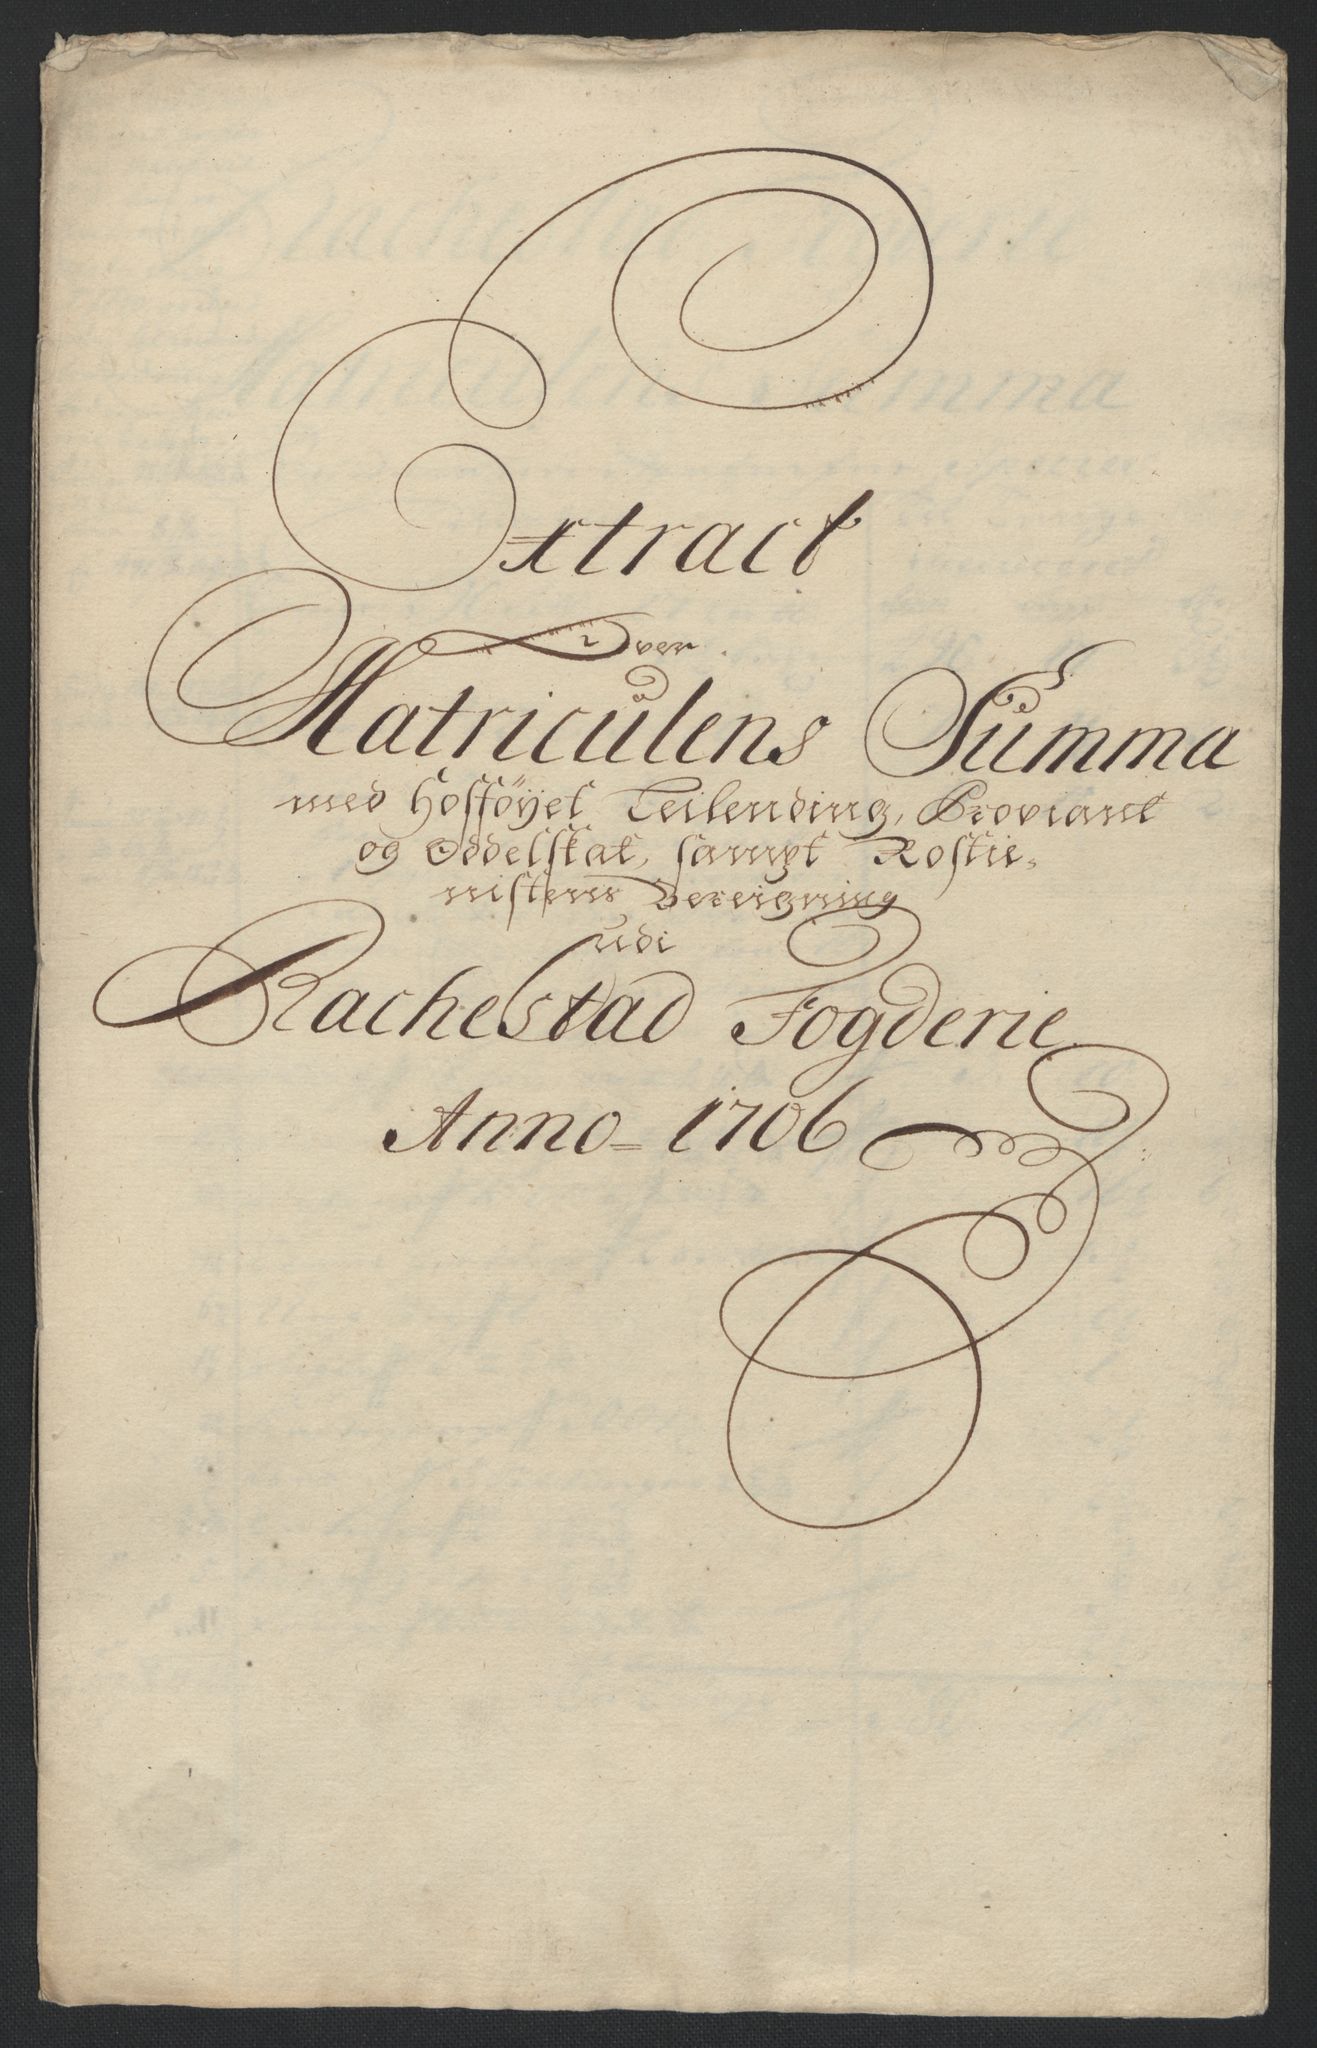 Extract
Over
Matriculens Summa
med Hosföyet Leilending, Proviant
og Oddelskat, sampt Rostie-
nistens Bereigning
udi
Rachestad Fogderie
Anno 1706